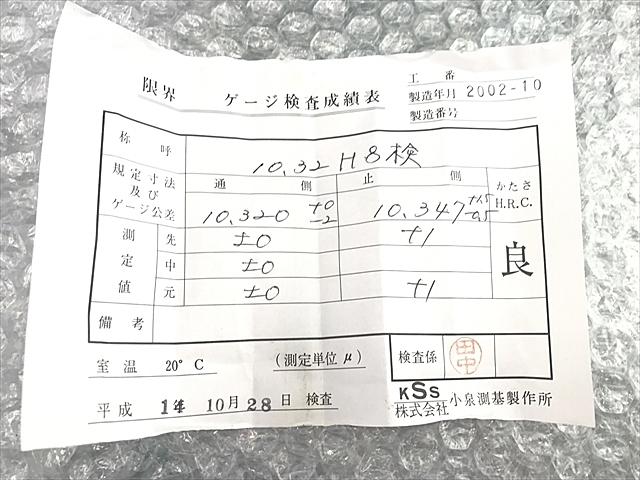 限界 ゲージ検査成績表
工番
製造年月 2002-10
製造番号
称呼 10.32 H8検
規定寸法及びゲージ公差
通側 止側
10.320 +0 -2 10.347 +1.5 -0.5
かたさ H.R.C.
測定値
先 ±0 +1
中 ±0
元 ±0 +1
良
備考
室温 20°C (測定単位μ)
検査係 田中
平成 14 10月 28日 検査
KSS
株式会社 小泉測基製作所